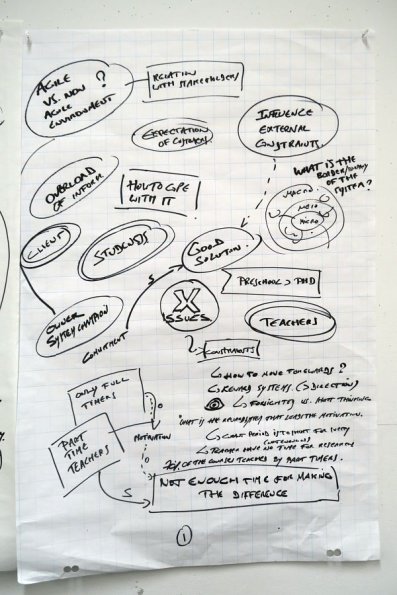 AGILE
VS. NON
AGILE
ENVIRONMENT
?
RELATION
WITH STAKEHOLDERS
EXPECTATION
OF CUSTOMERS
INFLUENCE
EXTERNAL
CONSTRAINTS.
OVERLOAD
OF INFORM.
HOW TO COPE
WITH IT
WHAT IS THE
BORDER/
OF THE
SYSTEM?
MACRO
MESO
MICRO
CLIENT
STUDENTS
GOOD
SOLUTION.
S
PRESCHOOL > PHD
OWNER
SYSTEM CHAMPION
COMMITMENT
X
ISSUES
TEACHERS
CONSTRAINTS
HOW TO MOVE TOWARDS ?
REWARD SYSTEMS. (DIRECTION)
ONLY FULL
TIMERS
O
FORESIGHT VS. SHORT THINKING
WHAT IS THE THAT LOSES THE MOTIVATION.
PART
TIME
TEACHERS
MOTIVATION
PERIOD IS SHORT FOR
TEACHER HAVE NO TIME FOR RESEARCH
OF THE COURSES TEACHED BY PART TIMERS.
O
S
NOT ENOUGH TIME FOR MAKING
THE DIFFERENCE
1